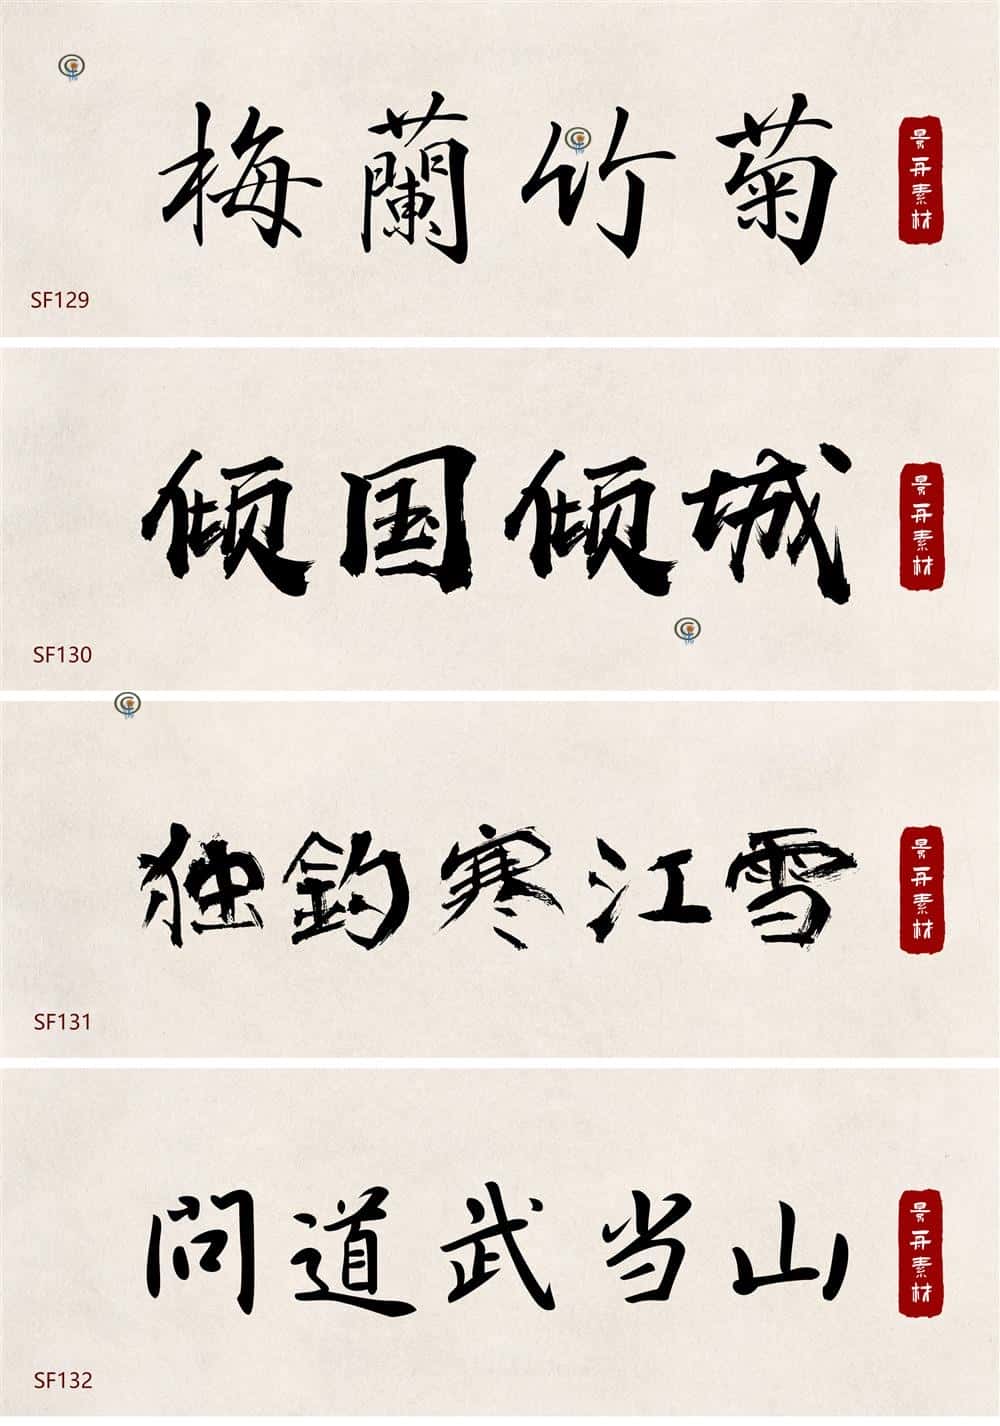 梅蘭竹菊
景舟素材
SF129
倾国倾城
景舟素材
SF130
独釣寒江雪
景舟素材
SF131
问道武当山
景舟素材
SF132